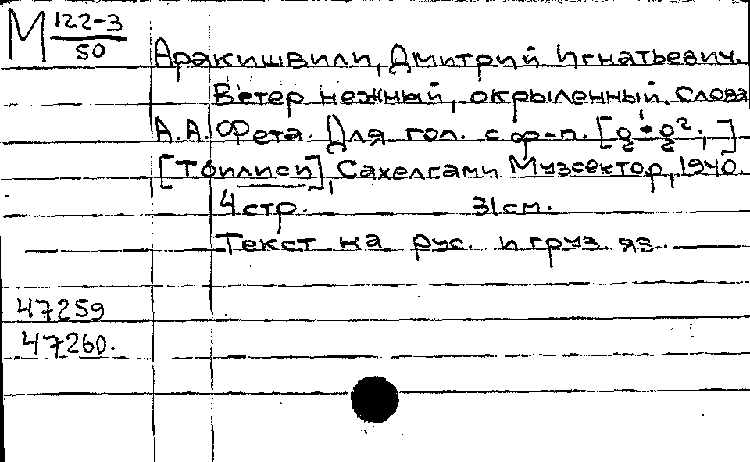 М 122-3
50
Аракишвили, Дмитрий Игнатьевич.
Ветер нежный, окрыленный. Слова
А.А. Фета. Для гол. с ф-п.
[Тбилиси], Сахелгами Музсектор, 1940.
4 стр. 31 см.
Текст на рус. и груз. яз.
47259
47260.